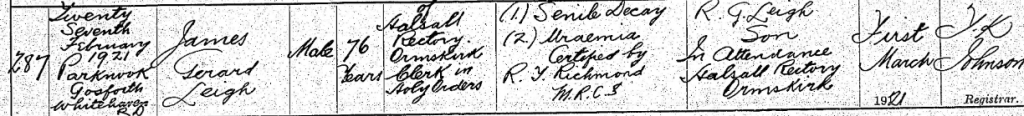 287
Twenty
Seventh
February
1921
Parknook
Gosforth
Whitehaven
R.D
James
Gerard
Leigh
Male
76
Years
of
Halsall
Rectory.
Ormskirk
Clerk in
Holy Orders
(1.) Senile Decay
(2.) Uraemia
Certified by
R. T. Richmond
M.R.C.S
R. G. Leigh
Son
In Attendance
Halsall Rectory
Ormskirk
First
March
1921
Johnson
Registrar.